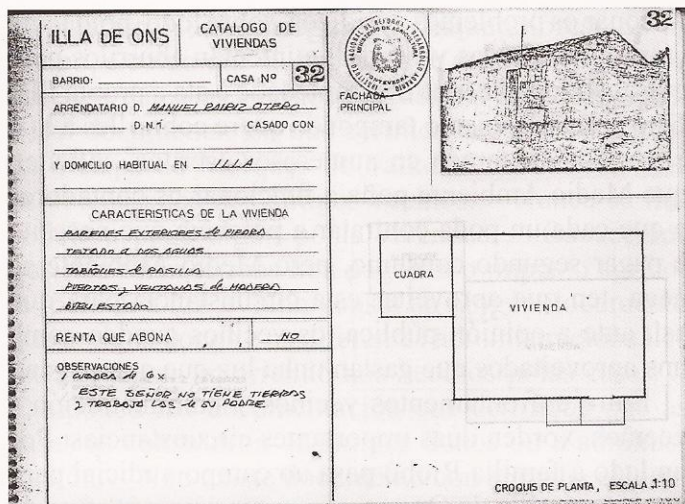 32
ILLA DE ONS CATALOGO DE VIVIENDAS
BARRIO: CASA Nº 32
ARRENDATARIO D. MANUEL PAIRIZ OTERO
D.N.I. CASADO CON
Y DOMICILIO HABITUAL EN ILLA
CARACTERISTICAS DE LA VIVIENDA
PAREDES EXTERIORES de PIEDRA
TEJADO A DOS AGUAS
TABIQUES de RASILLA
PUERTAS y VENTANAS de MADERA
BUEN ESTADO
RENTA QUE ABONA NO
OBSERVACIONES
CUADRA de 6 x
ESTE SEÑOR NO TIENE TIERRAS
Y TRABAJA LAS de SU PADRE
FACHADA
PRINCIPAL
INSTITUTO NACIONAL DE REFORMA Y DESARROLLO AGRARIO
MINISTERIO DE AGRICULTURA
PONTEVEDRA
CUADRA
VIVIENDA
CROQUIS DE PLANTA, ESCALA 1:10